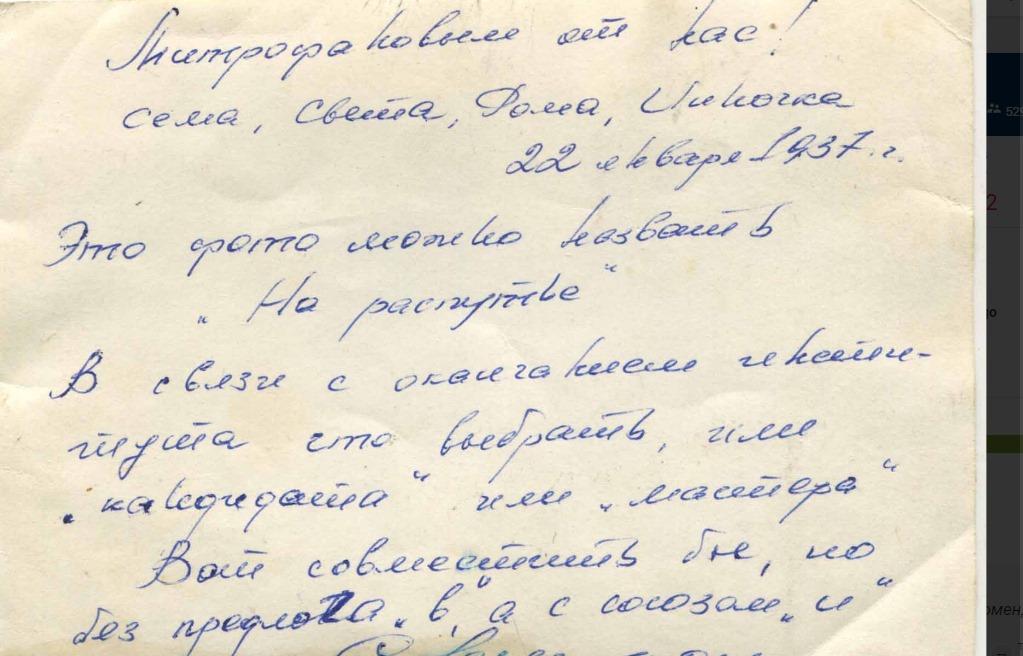 Митрофановым от нас!
сема, Света, Рома, Инночка
22 января 1937.г.
Это фото можно назвать
„На распутье“
В связи с окончанием инсти-
тута что выбрать, или
„кандидата“ или „мастера“
Вот совместить бы, но
без предлога „в“, а с союзом „и“
529
2
go
омен,